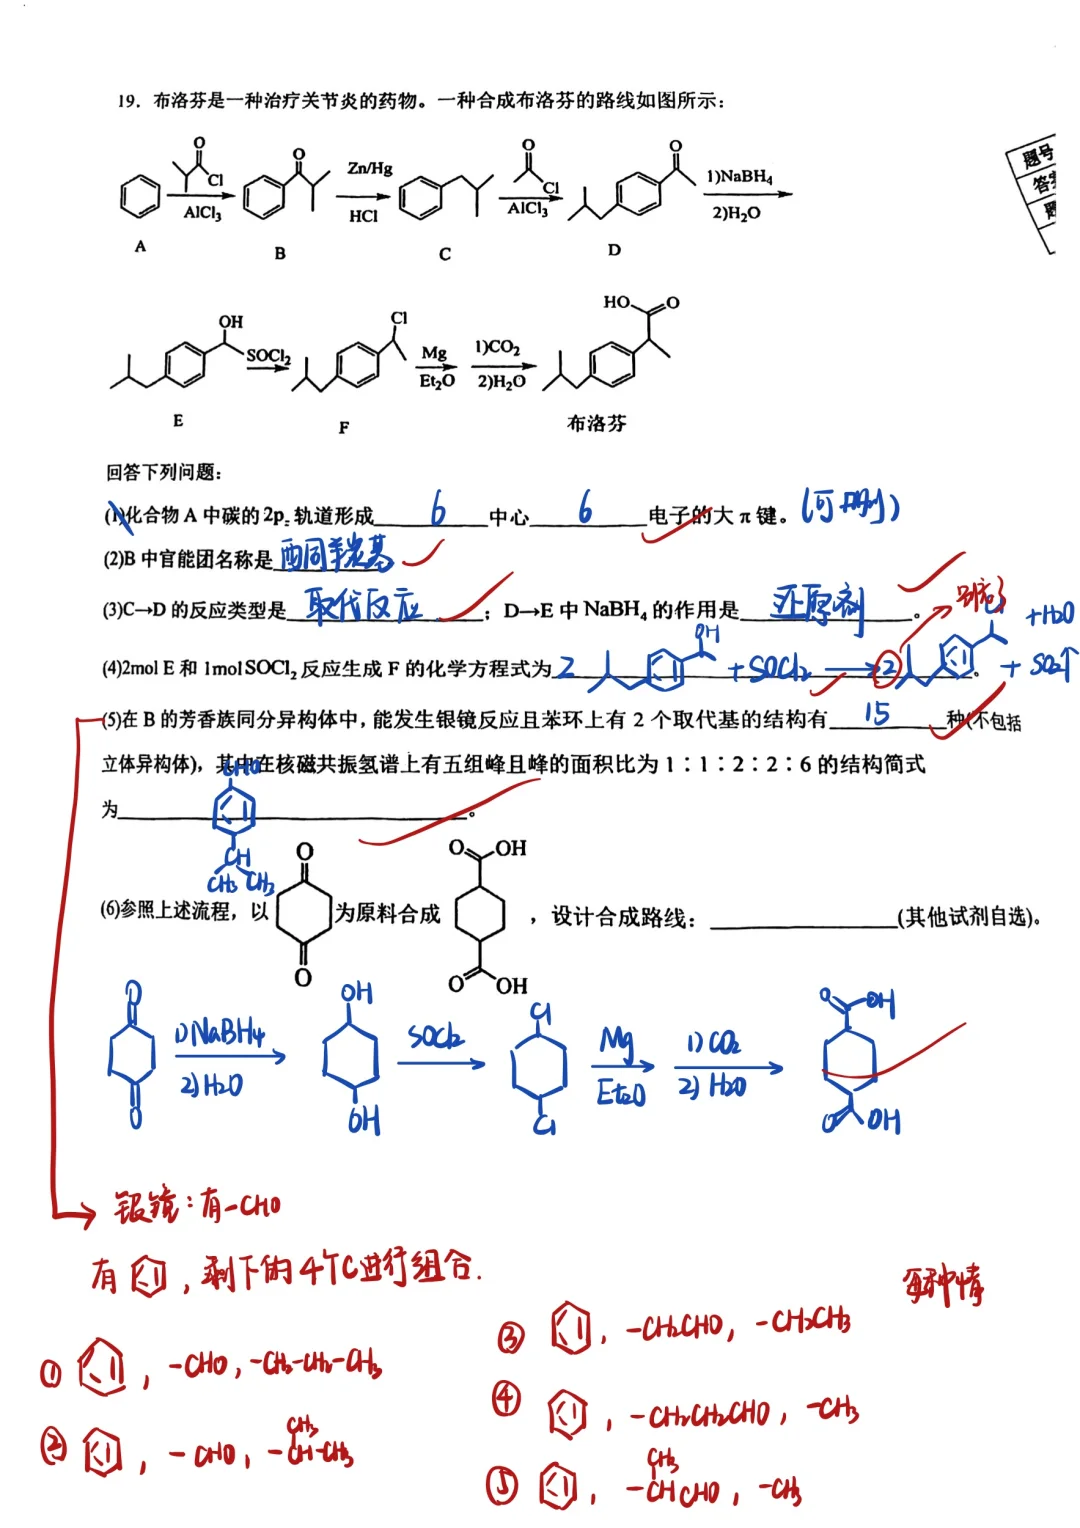 19. 布洛芬是一种治疗关节炎的药物。一种合成布洛芬的路线如图所示：
题号
O
Cl
AlCl₃
A
O
B
Zn/Hg
HCl
C
O
Cl
AlCl₃
O
D
1)NaBH₄
2)H₂O
OH
E
SOCl₂
Cl
F
Mg
Et₂O
1)CO₂
2)H₂O
HO O
布洛芬
回答下列问题：
(1)化合物 A 中碳的2p_z轨道形成 6 中心 6 电子的大 π 键。(可删)
(2)B 中官能团名称是 酮羰基
(3)C→D 的反应类型是 取代反应 ；D→E 中 NaBH₄ 的作用是 还原剂 。
别忘了
(4)2mol E 和 1mol SOCl₂ 反应生成 F 的化学方程式为 2 OH +SOCl₂ → 2 Cl +H₂O + SO₂↑ 。
(5)在 B 的芳香族同分异构体中，能发生银镜反应且苯环上有 2 个取代基的结构有 15 种(不包括
立体异构体)，其中在核磁共振氢谱上有五组峰且峰的面积比为 1∶1∶2∶2∶6 的结构简式
为 。
CHO
CH
CH₃ CH₃
(6)参照上述流程，以 O O 为原料合成 O OH O OH ，设计合成路线： (其他试剂自选)。
O
O
1)NaBH4
2)H2O
OH
OH
SOCl2
Cl
Cl
Mg
Et2O
1)CO2
2)H2O
O OH
O OH
银镜：有-CHO
有 ，剩下的4个C进行组合.
每种情
① ，-CHO，-CH₂-CH₂-CH₃
② ，-CHO，-CH-CH₃
CH₃
③ ，-CH₂CHO，-CH₂CH₃
④ ，-CH₂CH₂CHO，-CH₃
⑤ ，-CHCHO，-CH₃
CH₃